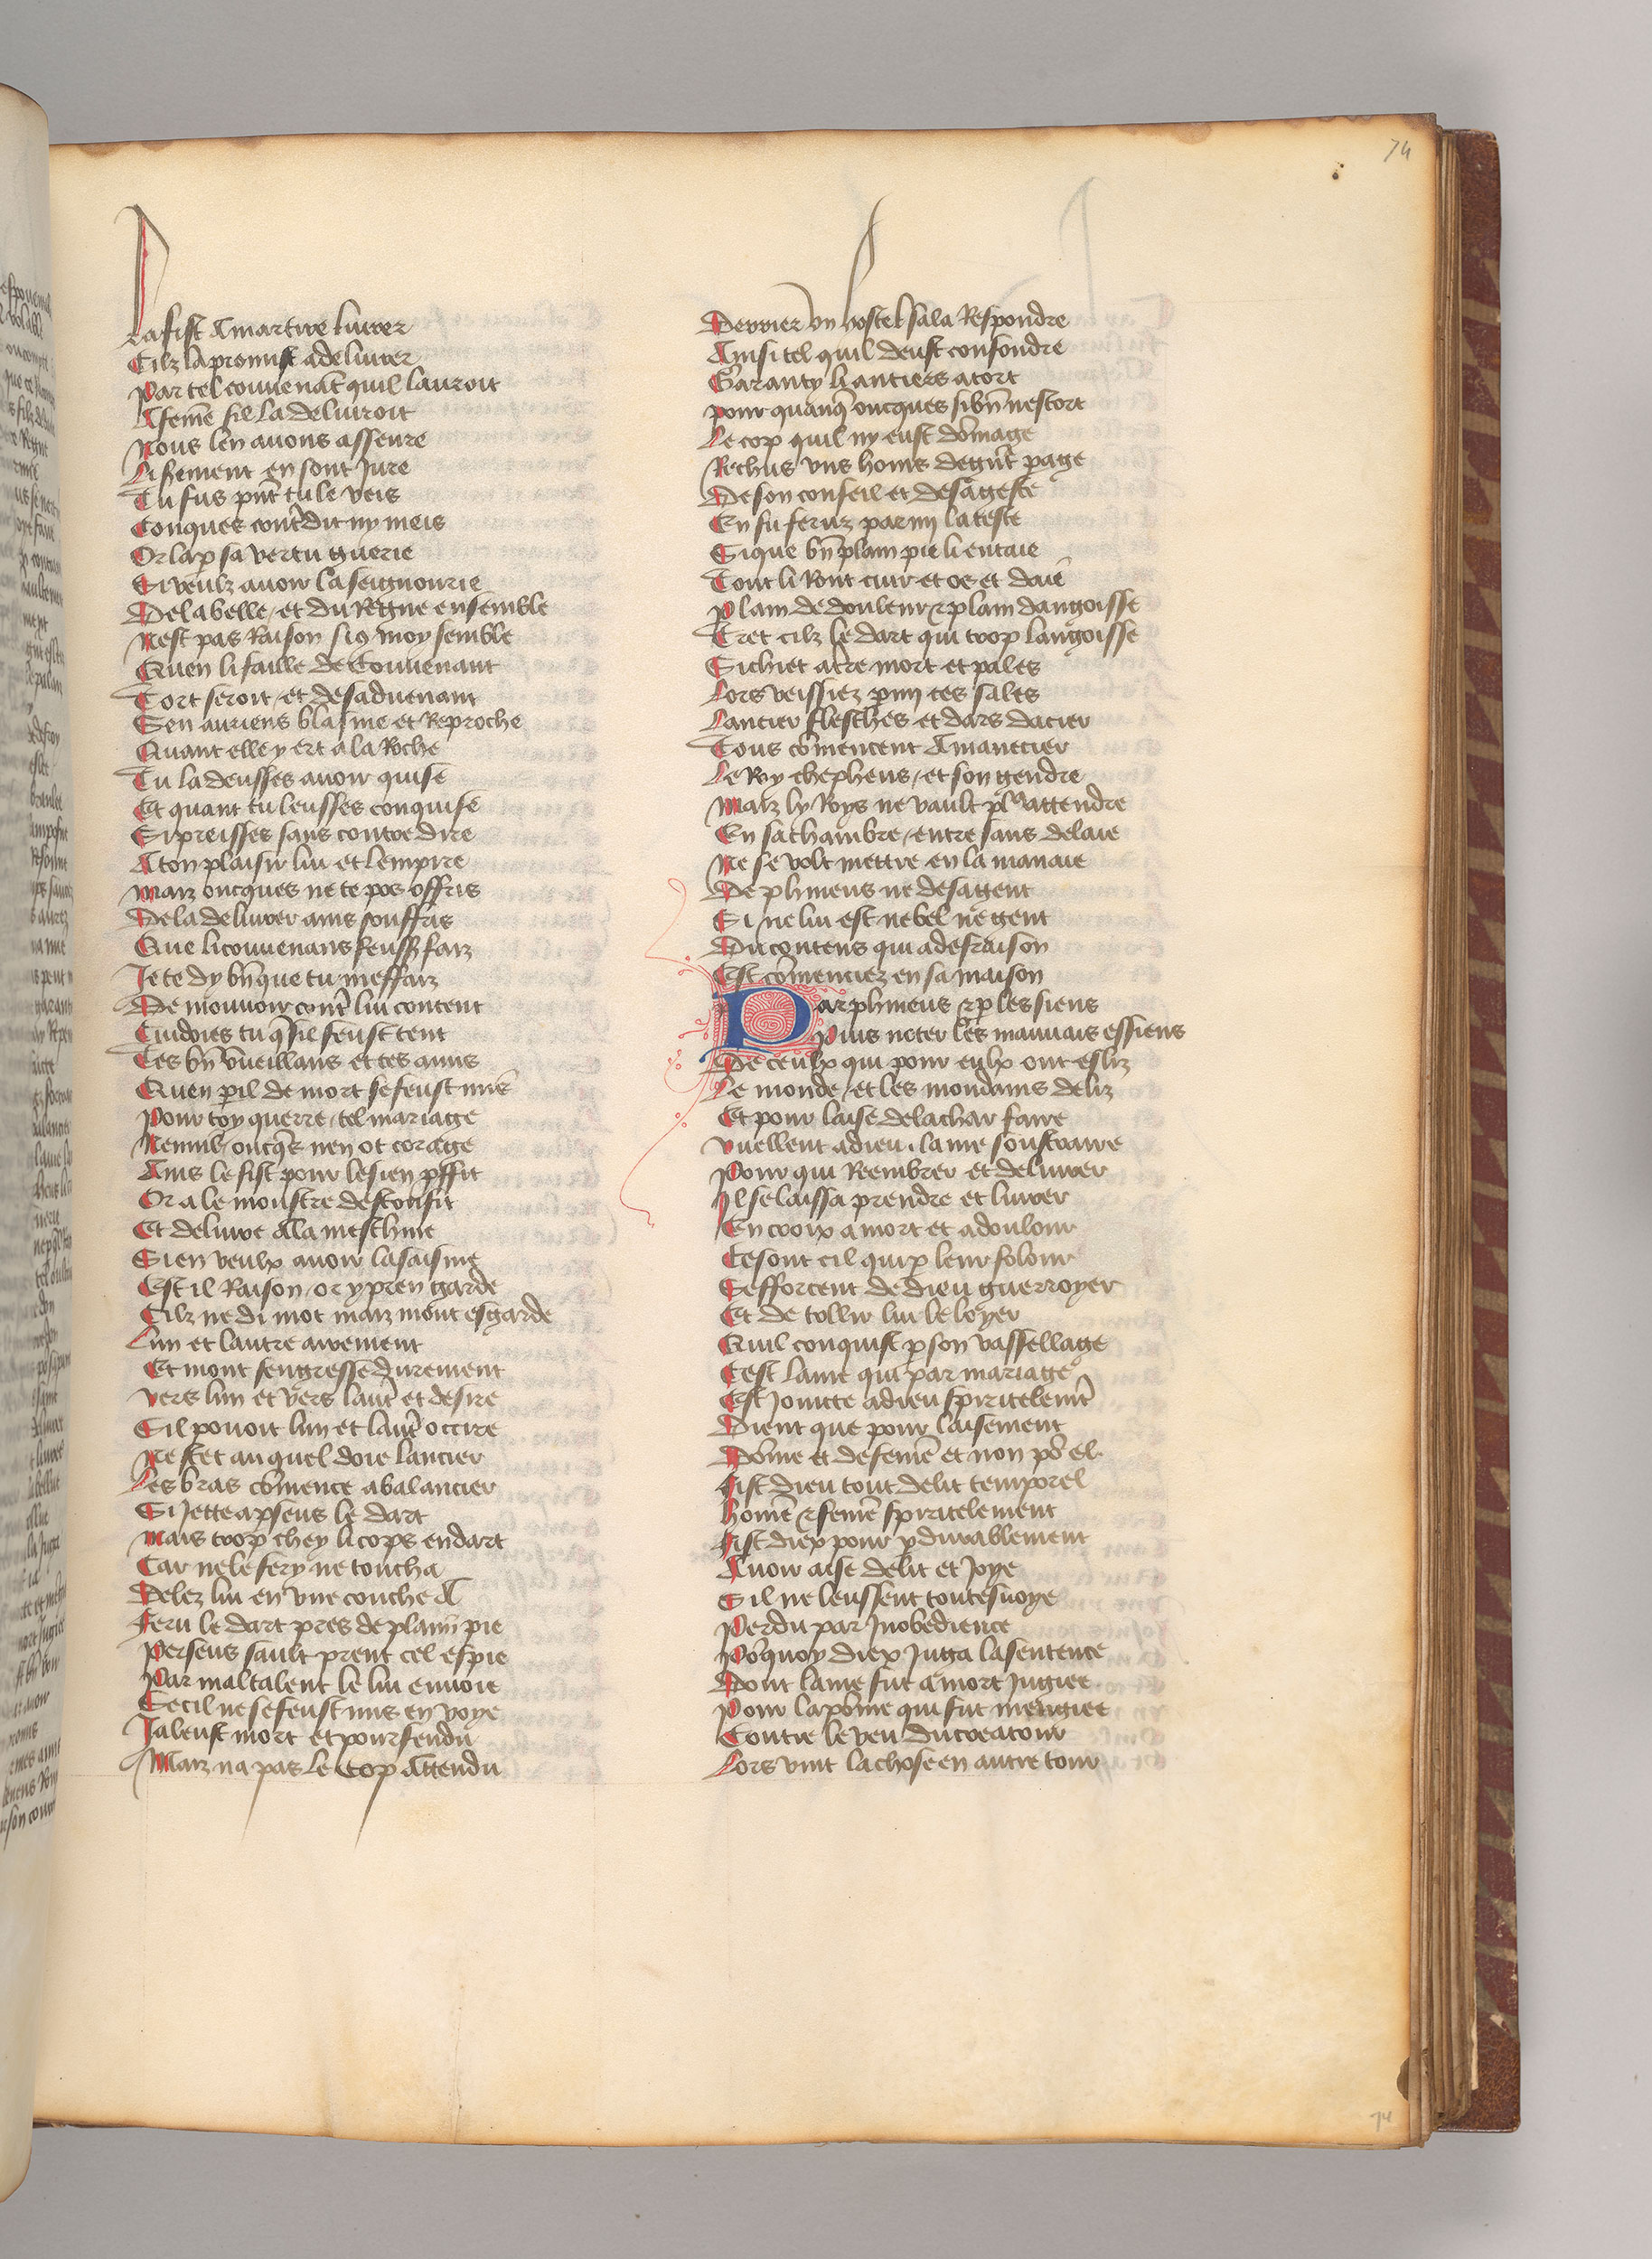 74
La fist A martire livrer
Cilz la promist a delivrer
Par tel couvenāt quil lauroit
A feme sil la delivroit
Nous len avons asseure
Li serement en sont Jure
Tu fus pnt tu le veis
Conques contdit ny meis
Or la p sa vertu guerie
Si veulz avoir la seignourie
De la belle / et du Regne ensemble
Nest pas Raison si q moy semble
Quen li faille de Couvenant
Tort seroit / et desadvenant
Sen auriens blasme et Reproche
Quant elle y ert a la Roche
Tu la deusses avoir quise
Et quant tu leusses conquise
Si preisses sans contredire
A ton plaisir lui et lempire
Maiz oncques ne te pos offris
De la delivrer ains souffris
Que li couvenans feust faiz
Je te dy bn que tu meffaiz
De mouvoir contr lui content
Cuidoies tu q sil feust tent
Tes bn vueillans et tes amis
Quen pil de mort se feust mis
Pour toy querre / tel mariage
Nennil / oncqs nen ot corage
Ains le fist pour le sien pffit
Or a le monstre desconfit
Et delivre A la meschine
Si en veulx avoir la saisine
Est il Raison / or y pren garde
Cilz ne di mot maiz mont esgarde
Lun et lautre airement
Et mont sengresse durement
Vers lun et vers laut et desire
Sil povoit lun et laut occire
Ne scet au quel doie lancier
Les bras cōmence a balancier
Si Jette a pseus le dart
Mais trop chey li cops en dart
Car ne le fery ne toucha
Delez lui en une couche A
Feru le dart pres de plain pie
Perseus sault prent cel espie
Par maltalent le lui envoie
Se cil ne se feust mis en voye
Ja leust mort et pourfendu
Maiz na pas le cop Attendu
Derrier un hostel sala Respondre
Ainsi tel quil deust confondre
Garanty li antiers a tort
Pour quanq oncques si bn nestort
Le cop quil ny eust dōmage
Rethus uns homs de gnt page
De son conseil et de sa geste
En fu feruz parmi la teste
Si que bn plain pie li entaie
Tout li Ront cuir et os et daie
Plain de douleur & plain dangoisse
Tret cilz le dart qui trop langoisse
Si chiet a tre mort et pales
Lors veissiez pmi ces sales
Lancier flesches et dars dacier
Tous cōmencent A manecier
Le Roy chepheus / et son gendre
Maiz ly Roys ne vault pl attendre
En sa chambre / entre sans delaie
Ne se volt mettre en la manaie
De phineus ne de sa gent
Si ne lui est ne bel ne gent
Du contens qui a desraison
Est cōmenciez en sa maison
Par phineus & p les siens
Puis noter les mauvais essiens
De ceulx qui pour eulx ont esliz
Le monde / et les mondains deliz
Et pour laise de la char faire
Vuellent a dieu lame soustraire
Pour qui Reembrer et delivrer
Il se laissa prendre et livrer
En croix a mort et a doulour
Ce sont cil qui p leur folour
Sefforcent de dieu guerroyer
Et de tollir lui le loyer
Quil conquist p son vassellage
Cest lame qui par mariage
Est Joincte a dieu spirtelemt
Dient que pour laisement
Dōme et de feme et non po el
Fist dieu tout delit temporel
Home & feme spiritelement
Fist diex pour pdurablement
Avoir aise delit et Joye
Sil ne leussent toutesvoye
Perdu par Inobedience
Poquoy diex Juga la sentence
Dont lame fut a mort Jugiee
Pour la pōme qui fut mengiee
Contre le veu du creatour
Lors vint la chose en autre tour
74